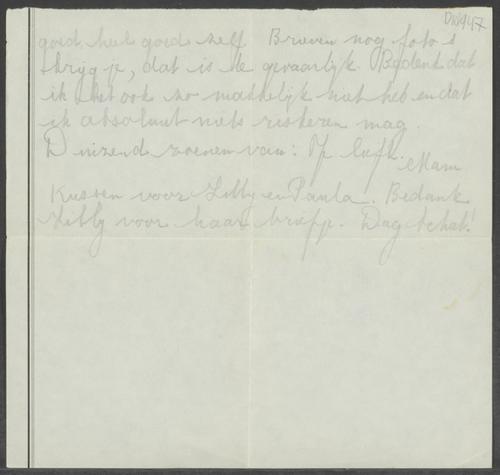 DW947
goed heel goed zelf Brieven nog foto's
krijg je, dat is te gevaarlijk. Bedenk dat
ik het ook zo makkelijk niet heb en dat
ik absoluut niets riskeren mag.
Duizend zoenen van: Je liefh.
Mam
Kussen voor Libby en Paula. Bedank
Libby voor haar briefje. Dag schat!